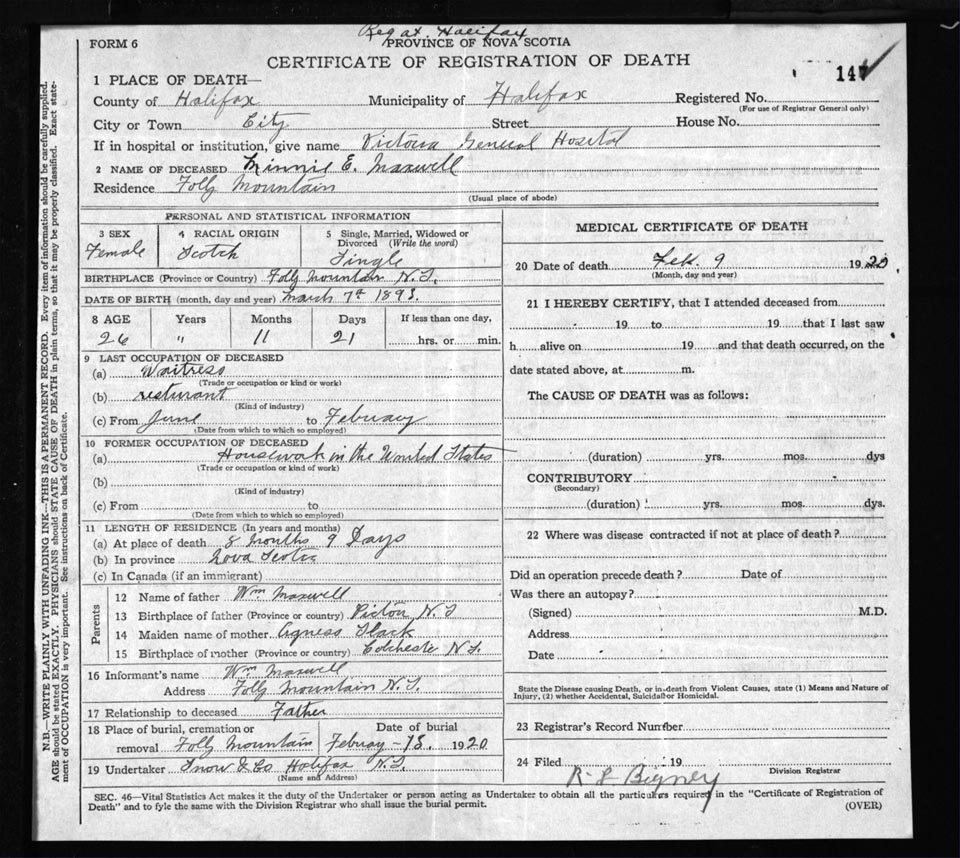 Reg at Halifax
FORM 6
PROVINCE OF NOVA SCOTIA
CERTIFICATE OF REGISTRATION OF DEATH
147
1 PLACE OF DEATH—
County of Halifax Municipality of Halifax Registered No.
(For use of Registrar General only)
City or Town City Street House No.
If in hospital or institution, give name Victoria General Hospital
2 NAME OF DECEASED Minnie E. Maxwell
Residence Folly Mountain
(Usual place of abode)
PERSONAL AND STATISTICAL INFORMATION
3 SEX 4 RACIAL ORIGIN 5 Single, Married, Widowed or Divorced (Write the word)
Female Scotch Single
BIRTHPLACE (Province or Country) Folly Mountain N.S.
DATE OF BIRTH (month, day and year) March 7th 1893.
8 AGE Years Months Days If less than one day,
26 " 11 21 hrs. or min.
9 LAST OCCUPATION OF DECEASED
(a) Waitress
(Trade or occupation or kind or work)
(b) resturant
(Kind of industry)
(c) From June to Febuary
(Date from which to which so employed)
10 FORMER OCCUPATION OF DECEASED
(a) Housework in the United States
(Trade or occupation or kind of work)
(b)
(Kind of industry)
(c) From to
(Date from which to which so employed)
11 LENGTH OF RESIDENCE (In years and months)
(a) At place of death 8 months 9 Days
(b) In province Nova Scotia
(c) In Canada (if an immigrant)
Parents
12 Name of father Wm Maxwell
13 Birthplace of father (Province or country) Pictou N.S
14 Maiden name of mother Agness Slack
15 Birthplace of mother (Province or country) Colcheste N.S.
16 Informant's name Wm Maxwell
Address Folly Mountain N.S.
17 Relationship to deceased Father
18 Place of burial, cremation or Date of burial
removal Folly Mountain Febuay - 13. 1920
19 Undertaker Snow & Co Halifax N.S.
(Name and Address)
MEDICAL CERTIFICATE OF DEATH
20 Date of death Feb. 9 1920.
(Month, day and year)
21 I HEREBY CERTIFY, that I attended deceased from
19 to 19 that I last saw
h alive on 19 and that death occurred, on the
date stated above, at m.
The CAUSE OF DEATH was as follows:
(duration) yrs. mos. dys
CONTRIBUTORY
(Secondary)
(duration) yrs. mos. dys.
22 Where was disease contracted if not at place of death?
Did an operation precede death? Date of
Was there an autopsy?
(Signed) M.D.
Address
Date
State the Disease causing Death, or in death from Violent Causes, state (1) Means and Nature of
Injury, (2) whether Accidental, Suicidal or Homicidal.
23 Registrar's Record Number
24 Filed 19
Division Registrar
R. L Bigney
SEC. 46—Vital Statistics Act makes it the duty of the Undertaker or person acting as Undertaker to obtain all the particulars required in the "Certificate of Registration of
Death" and to fyle the same with the Division Registrar who shall issue the burial permit.
(OVER)
N.B.—WRITE PLAINLY WITH UNFADING INK—THIS IS A PERMANENT RECORD. Every item of information should be carefully supplied.
AGE should be stated EXACTLY. PHYSICIANS should STATE CAUSE OF DEATH in plain terms, so that it may be properly classified. Exact state-
ment of OCCUPATION is very important. See instructions on back of Certificate.